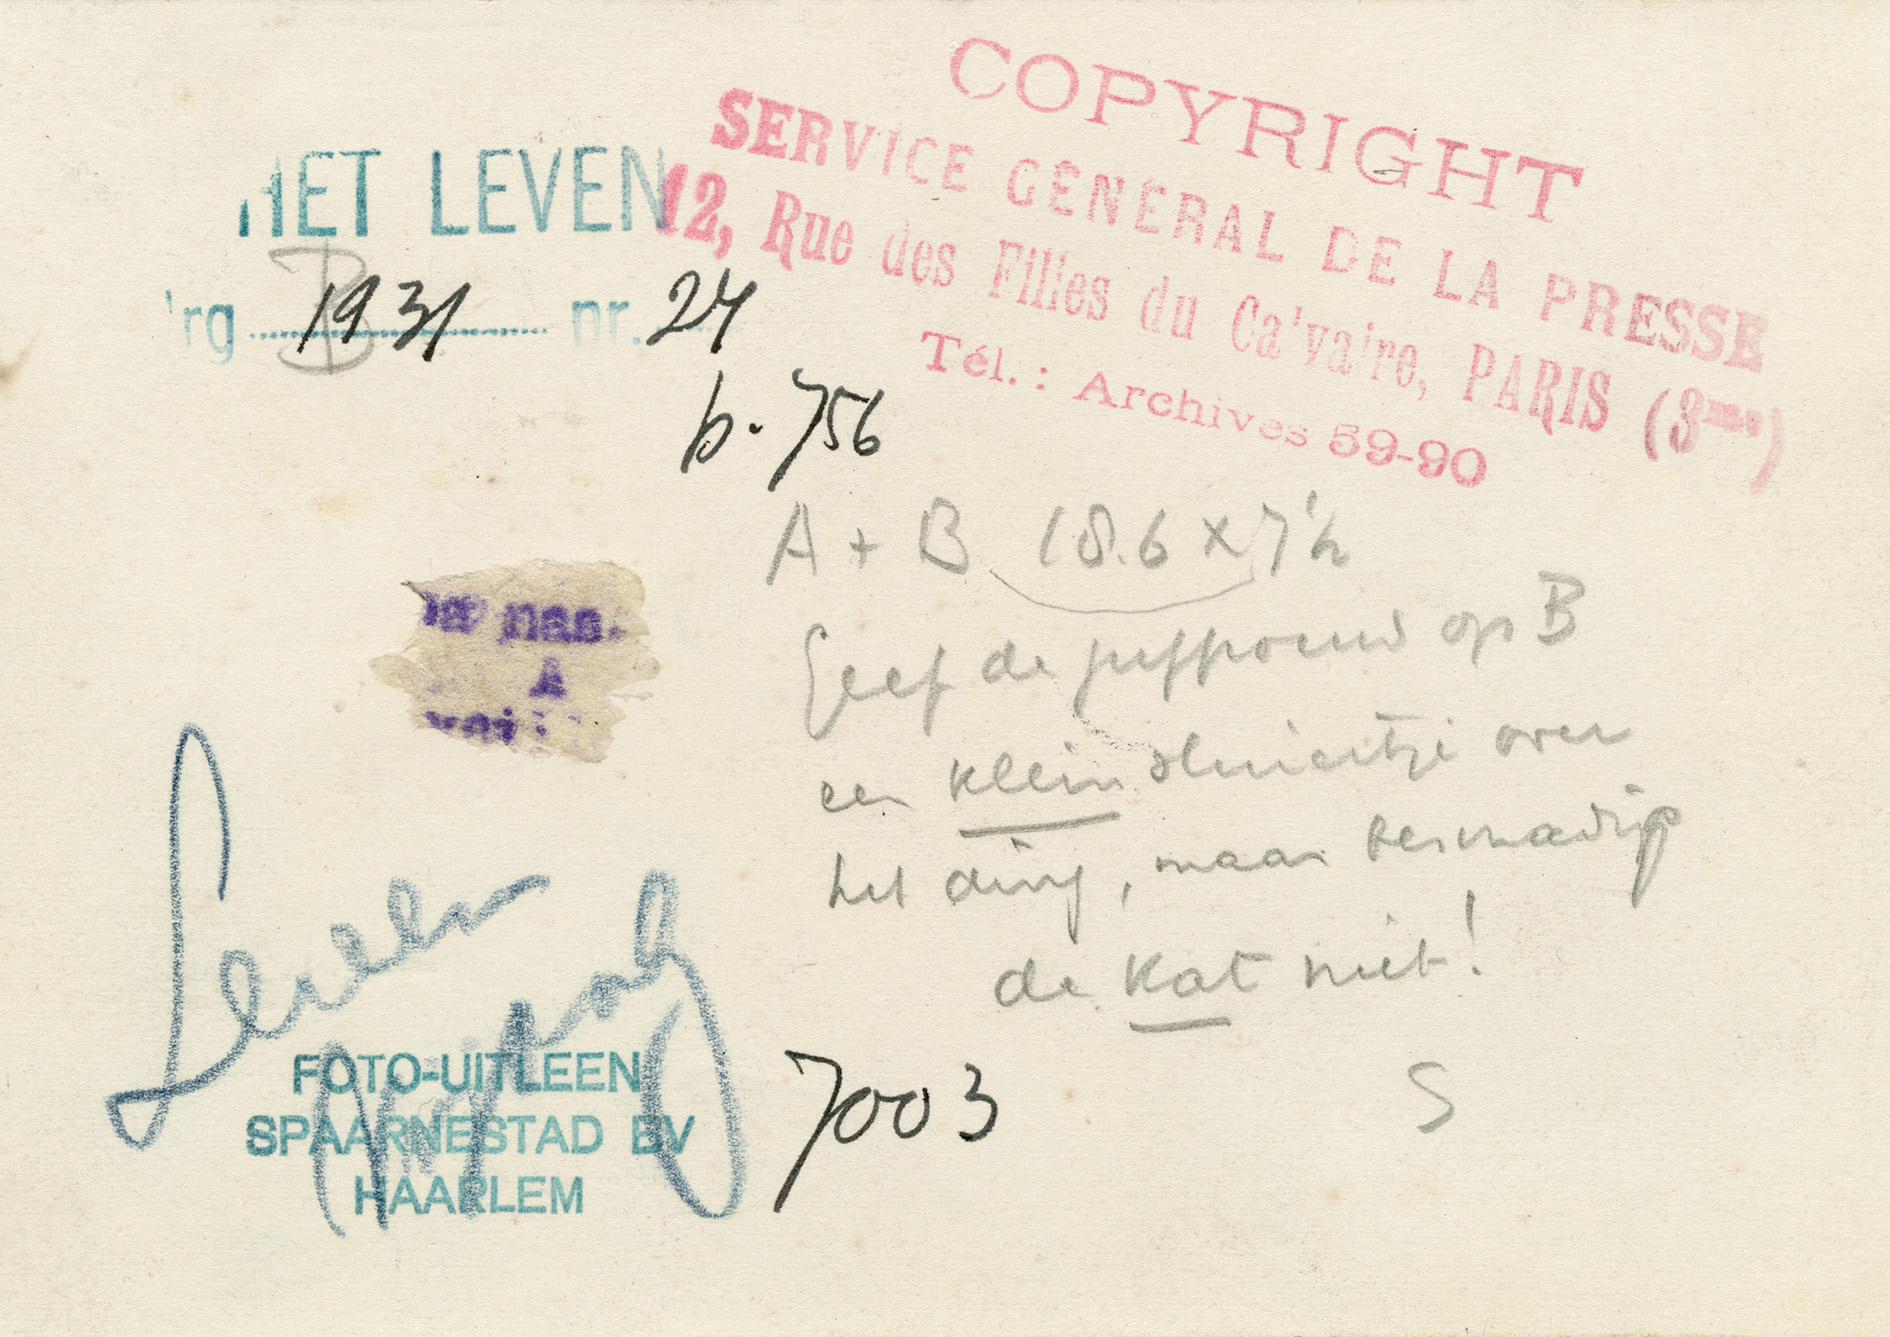 COPYRIGHT
SERVICE GÉNÉRAL DE LA PRESSE
12, Rue des Filles du Calvaire, PARIS (3me)
Tél. : Archives 59-90
HET LEVEN
B
'rg 1931 nr. 24
b. 756
A + B 18.6 x 7½
Geef de juffrouw op B
een klein sluiertje over
het ding, maar
de kat niet!
nas.
A
7003
S
FOTO-UITLEEN
SPAARNESTAD BV
HAARLEM